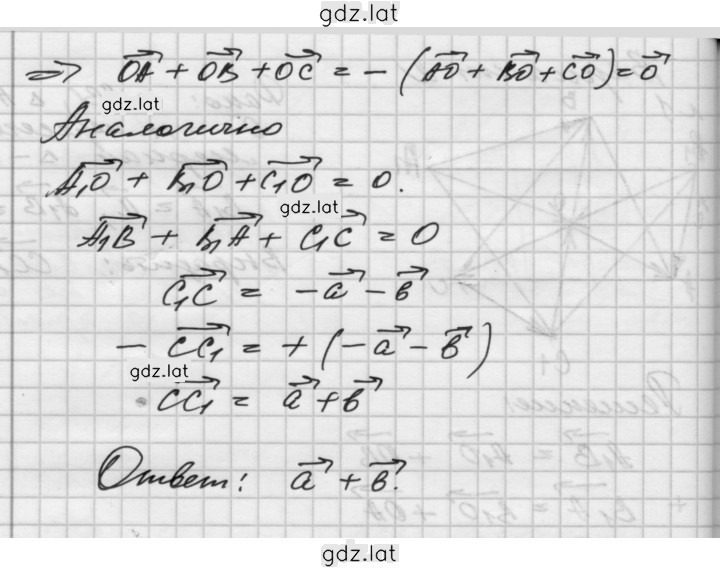 gdz.lat
⇒ OA⃗ + OB⃗ + OC⃗ = − (AO⃗ + BO⃗ + CO⃗) = 0⃗
gdz.lat
Аналогично
A₁O⃗ + B₁O⃗ + C₁O⃗ = 0.
gdz.lat
A₁B⃗ + B₁A⃗ + C₁C⃗ = 0
C₁C⃗ = −a⃗ − b⃗
− CC₁⃗ = + (−a⃗ − b⃗)
gdz.lat
CC₁⃗ = a⃗ + b⃗
Ответ: a⃗ + b⃗.
gdz.lat